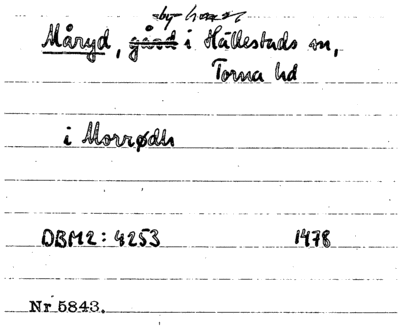 by
Måryd, gård i Hällestads sn,
Torna hd
i Morrødh
DBM2: 4253 1478
Nr 5843.